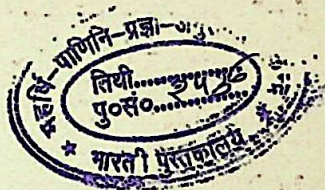 महर्षि-पाणिनि-प्रज्ञा-
तिथी..............
पु०सं०..............
* भारती पुस्तकालय *